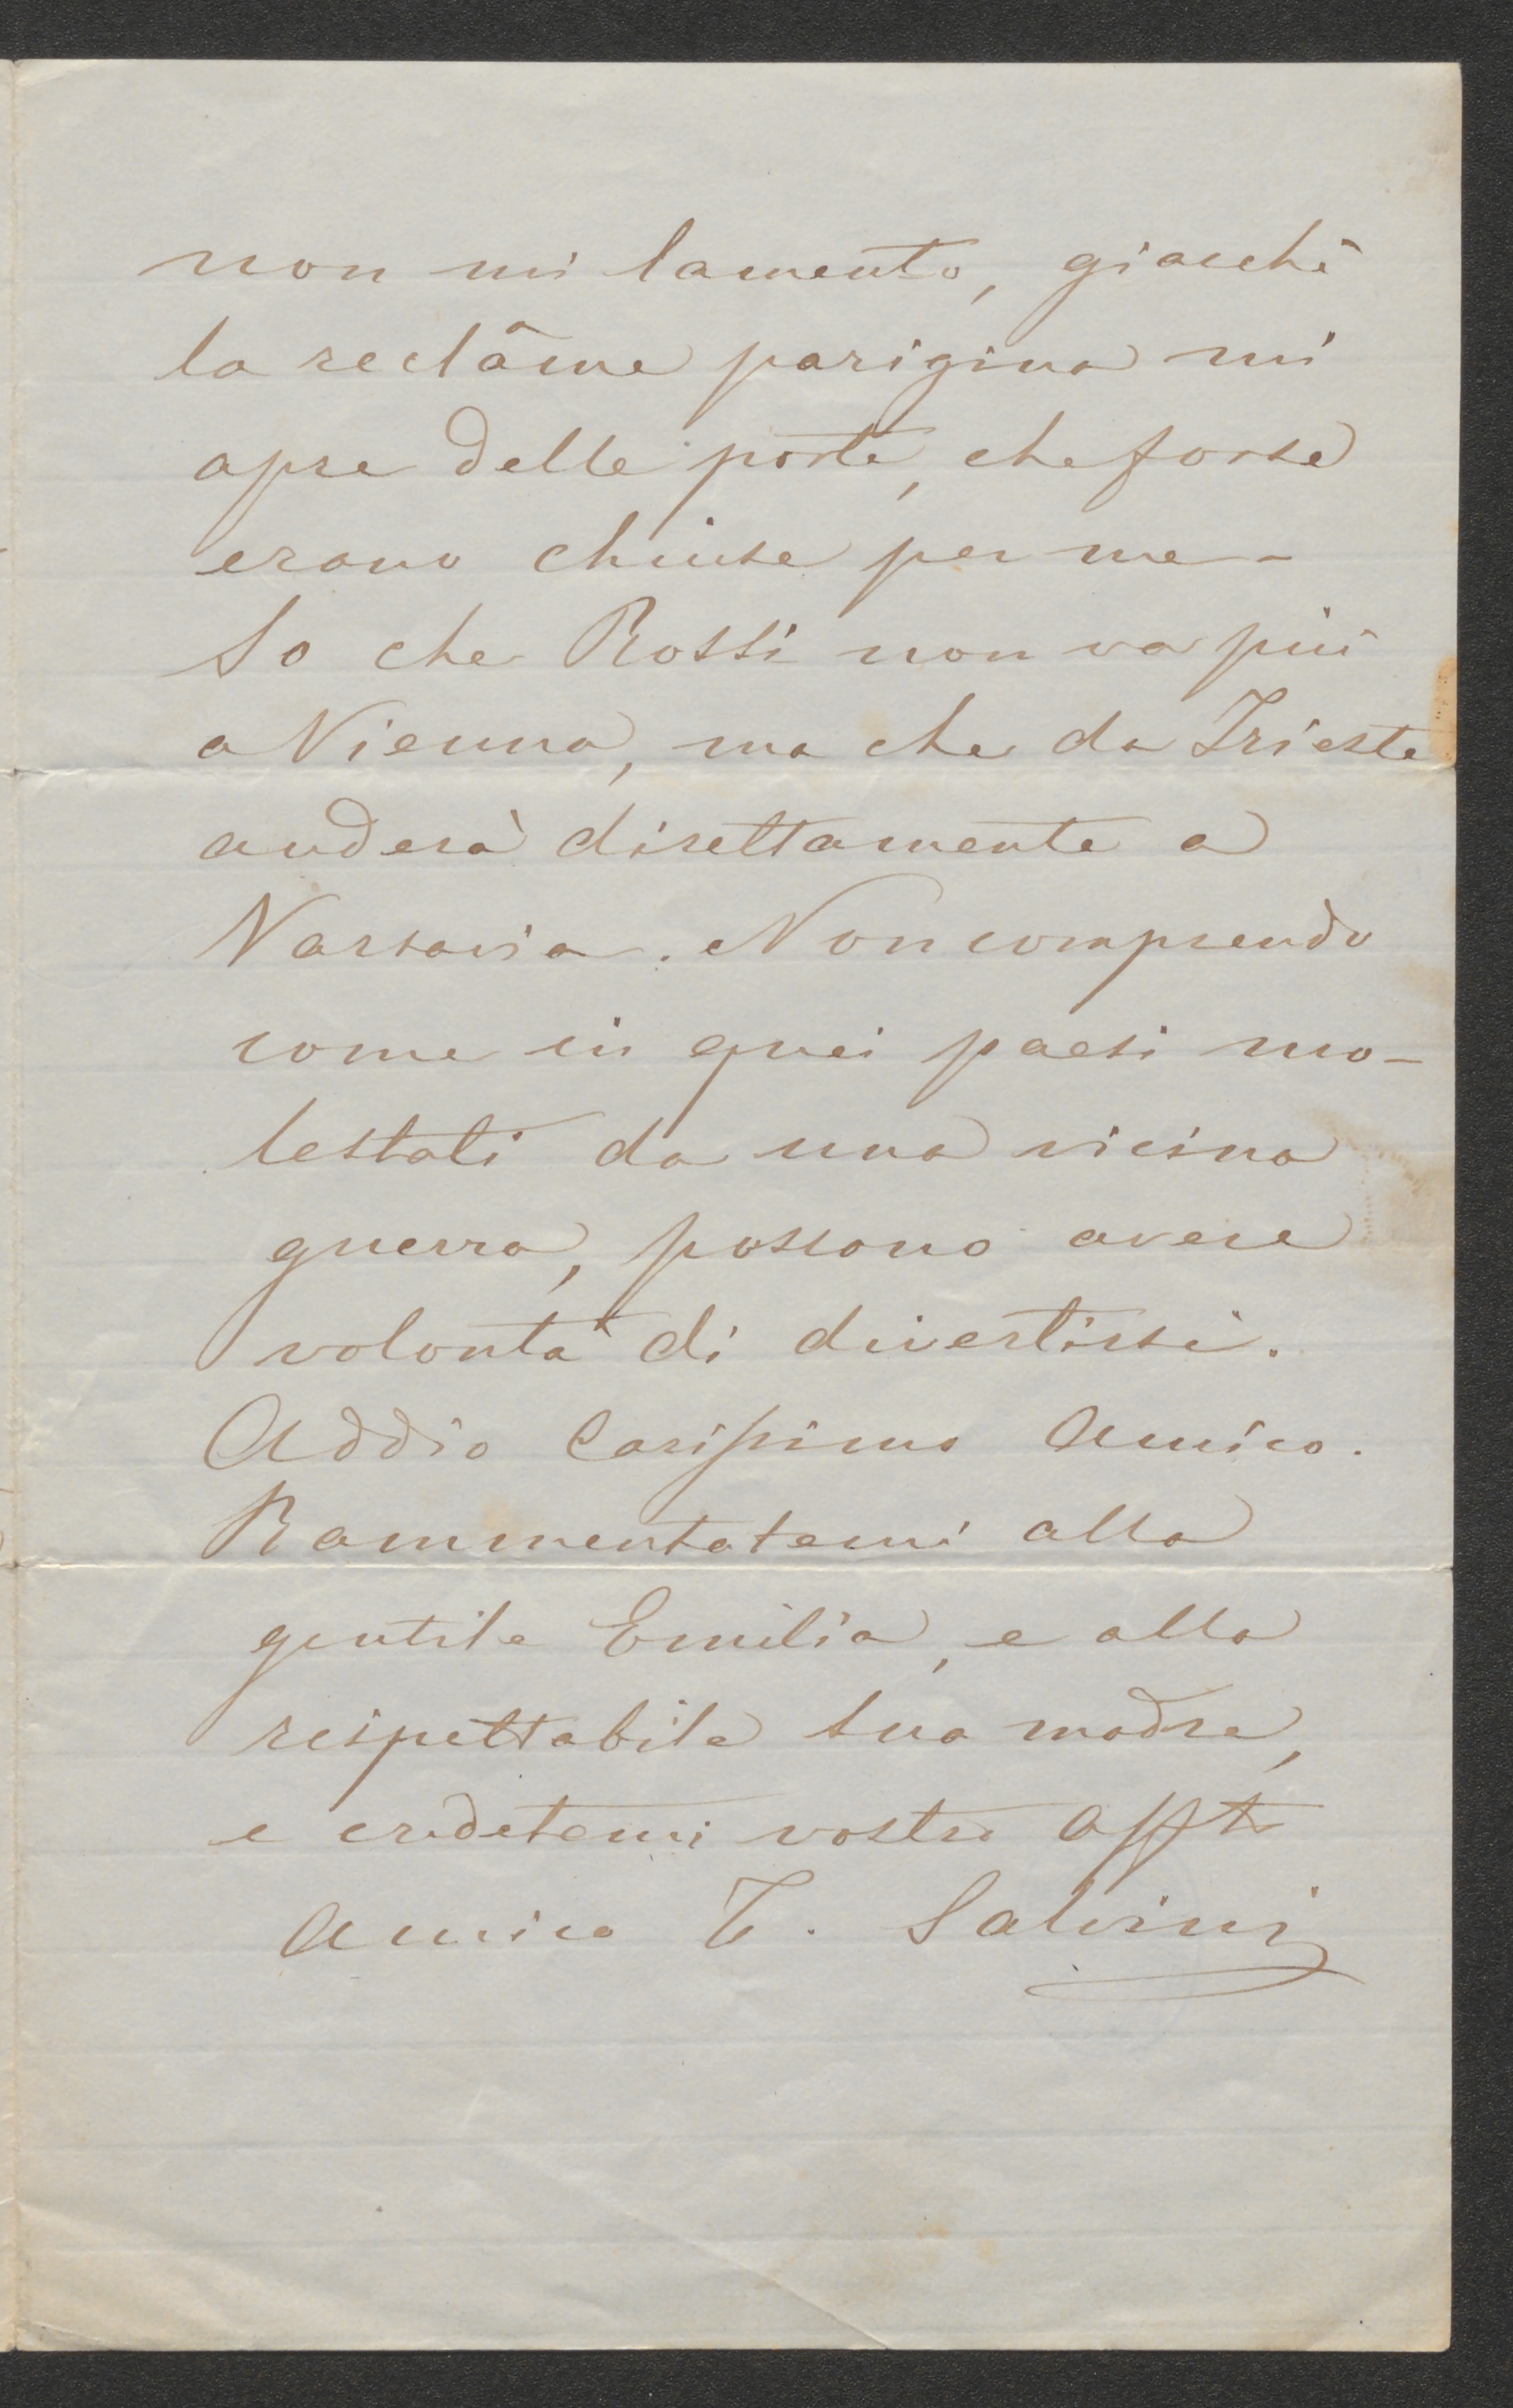 non mi lamento, giacchè
la reclâme parigina mi
apre delle porte, che forse
erano chiuse per me -
So che Rossi non va più
a Vienna, ma che da Trieste
anderà direttamente a
Varsavia. Non comprendo
come in quei paesi mo-
lestati da una vicina
guerra, possono avere
volontà di divertirsi.
Addio Carissimo Amico.
Rammentatemi alla
gentile Emilia, e alla
rispettabile sua madre,
e credetemi vostro Affto
Amico T. Salvini